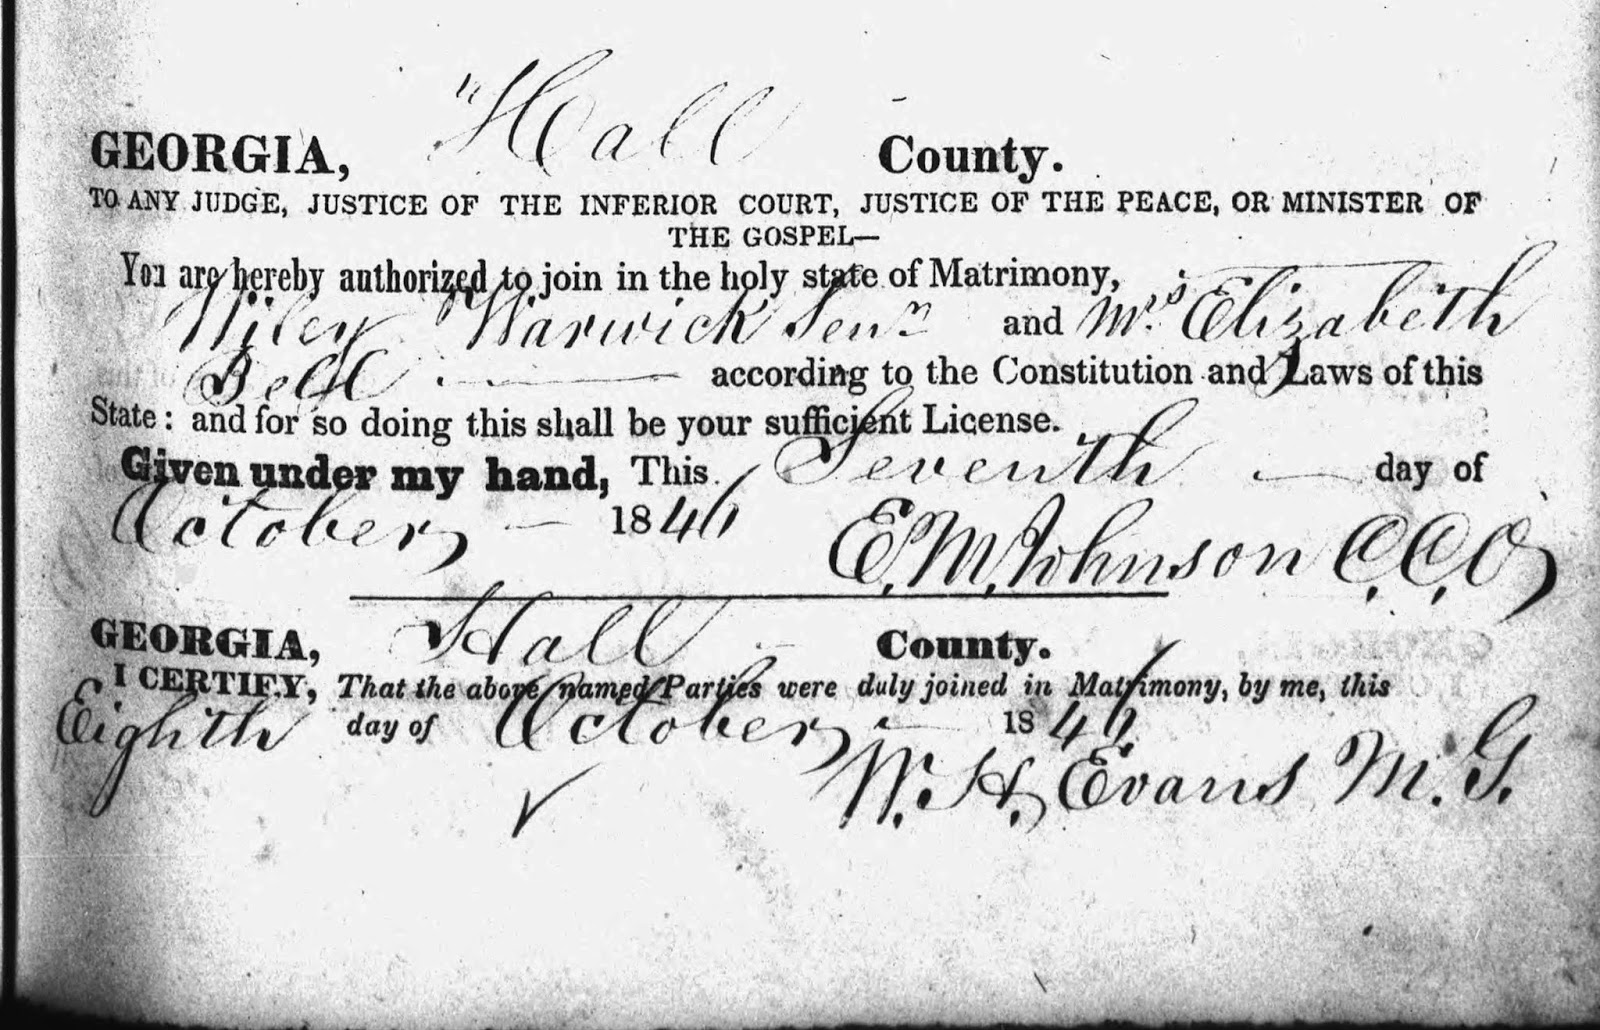 GEORGIA, Hall County.
TO ANY JUDGE, JUSTICE OF THE INFERIOR COURT, JUSTICE OF THE PEACE, OR MINISTER OF
THE GOSPEL—
You are hereby authorized to join in the holy state of Matrimony,
Wiley Warwick Senr and Mrs Elizabeth
Bell according to the Constitution and Laws of this
State: and for so doing this shall be your sufficient License.
Given under my hand, This Seventh day of
October 1846 E. M. Johnson C.C.O
GEORGIA, Hall County.
I CERTIFY, That the above named Parties were duly joined in Matrimony, by me, this
Eighth day of October 1846
W. H. Evans M. G.